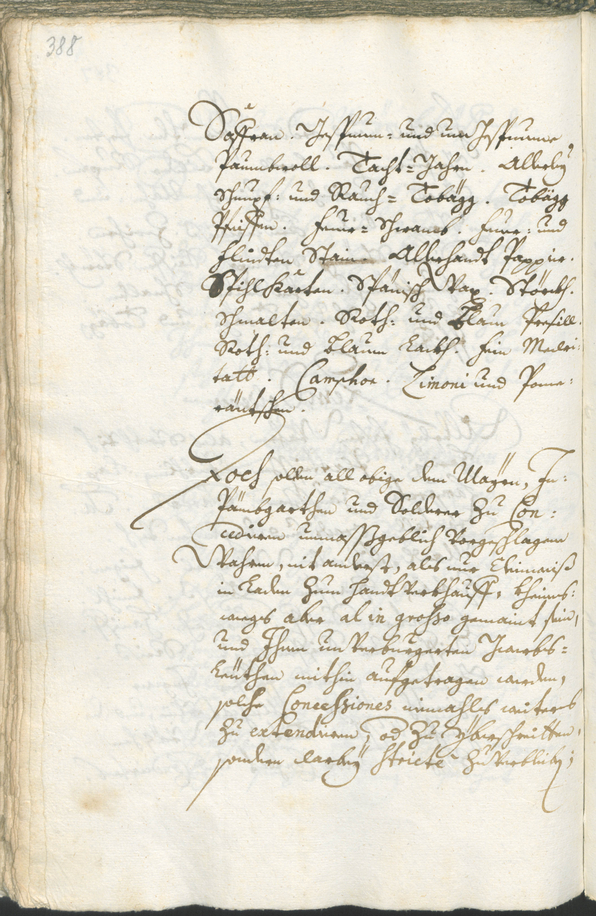 388
Saffran. Gespunn- und un Gespunne
Paumbwoll. Tacht-Jahrn. Allerley
Schnupf- und Rauch-Tobägg. Tobägg
Pfeiffen. Feuer-Schwamb. Feuer- und
Flindten Stain. Allerhandt Pappir.
Spihl Karten. Spänisch Wax. Störkh.
Schmalten. Roth- und blaun Presill.
Roth- und blauen Lackh. fein
tatt. Camphor. Limoni und Pome-
räntschen.
Doch sollen all obige dem Mayrn, In-
Pämbgarthen und Solderer zu Con-
cediern unmassgeblich Vorgeschlagene
Wahren, nit anderst, als nur
in Laden zum Handt Verkhauff, kheins-
weegs aber al in grosso gemaint sein,
und Ihnen un Verburgerten Gwerbs-
Leüthen mithin aufgetragen werden,
solche Concessiones niemahls weiters
zu extendiren, od zu yberschreitten,
sondern darbey stricte zu Verbleiben;